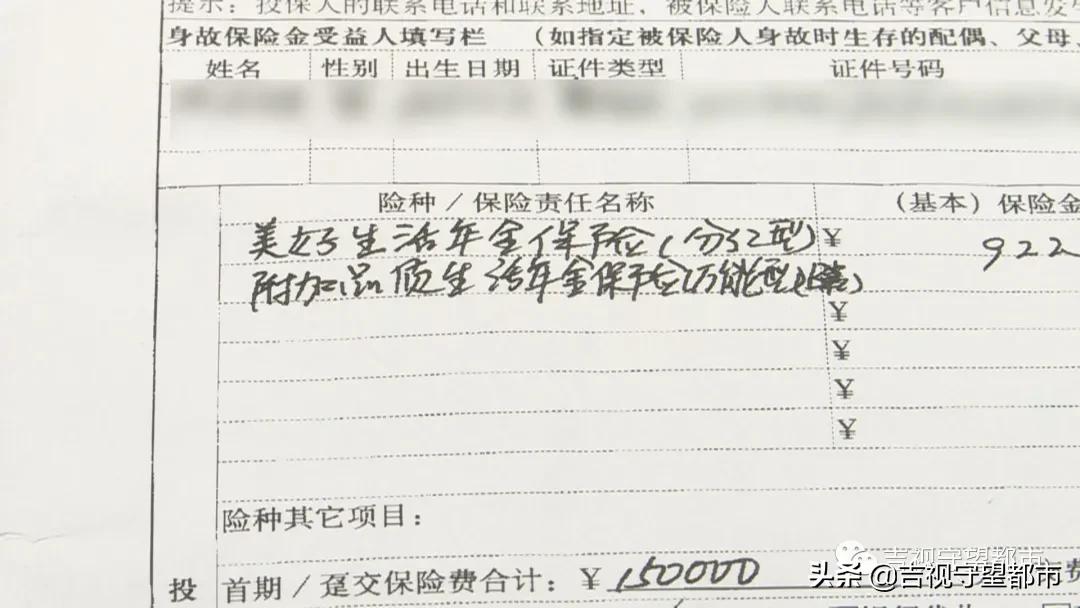 提示：投保人的联系电话和联系地址，被保险人联系电话等客户信息发生
身故保险金受益人填写栏 （如指定被保险人身故时生存的配偶、父母、
姓名 性别 出生日期 证件类型 证件号码
险种／保险责任名称 （基本）保险金
美好生活年金保险(分红型) ¥ 922
附加品质生活年金保险(万能型)
¥
¥
¥
¥
险种其它项目：
投 首期／趸交保险费合计：¥ 150000 费
吉视守望都市
头条 @吉视守望都市